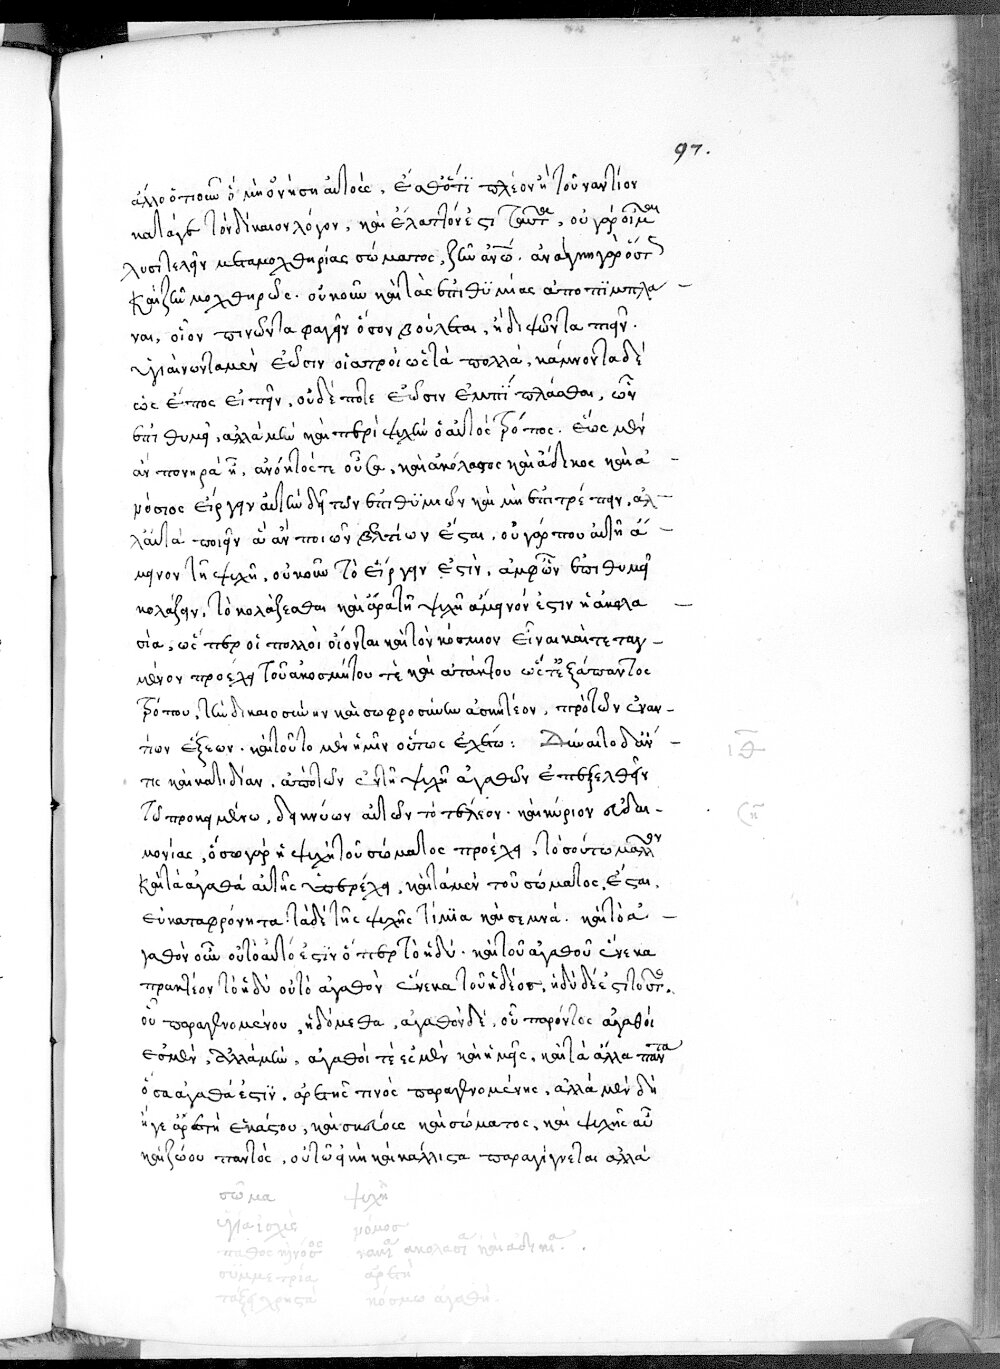 97.
ἄλλο ὁτιοῦν ὃ μὴ ὀνήσῃ αὐτὸς, ἔσθ' ὅτι πλέον ἢ τοὐναντίον
κατά γε τὸν δίκαιον λόγον, καὶ ἔλαττον ἐστι ταῦτα, οὐ γὰρ οἶμαι
λυσιτελεῖν μετὰ μοχθηρίας σώματος, ζῆν ἀνθρώπῳ. ἀνάγκη γὰρ οὕτω
καὶ ζῆν μοχθηρῶς. οὐκοῦν καὶ τὰς ἐπιθϋμίας ἀποπϊμπλά
ναι, οἷον πινῶντα φαγεῖν ὅσον βούλεται, ἢ διψῶντα πιεῖν.
ὑγιαίνωντα μὲν ἐῶσιν οἱ ἰατροὶ ὡς τὰ πολλὰ, κάμνοντα δὲ
ὡς ἔπος εἰπεῖν, οὐδέποτε ἐῶσιν ἐμπίπλασθαι, ὧν
ἐπιθυμεῖ, ἀλλὰ μὴν καὶ περὶ ψυχὴν ὁ αὐτὸς τρόπος. ἕως μὲν
ἂν πονηρὰ ᾖ, ἀνόητός τε οὖσα, καὶ ἀκόλαστος καὶ ἄδικος καὶ ἀ
νόσιος εἴργειν αὐτὴν δεῖ τῶν ἐπιθϋμιῶν καὶ μὴ ἐπιτρέπειν, ἀλ
λ' ἄττα ποιεῖν ἃ ἂν ποιῶν βελτίων ἔσται, οὐ γάρ που αὐτῇ ἄ
μεινον τῇ ψυχῇ, οὐκοῦν τὸ εἴργειν ἐστὶν, ἀμφ' ὧν ἐπιθυμεῖ
κολάζειν, τὸ κολάζεσθαι καὶ ἄρα τῇ ψυχῇ ἄμεινόν ἐστιν ἢ ἀκολα
σία, ὥσπερ οἱ πολλοὶ οἴονται καὶ τὸν κόσμιον εἶναι καὶ τεταγ
μένον προέχει τοῦ ἀκοσμήτου τὲ καὶ ἀτάκτου ὥστε ἐξάπαντος
τρόπου, τὴν δικαιοσύνην καὶ σωφροσύνην ἀσκητέον, πρὸ τῶν ἐναν
τίων ἕξεων. καὶ τοῦτο μὲν ἡμῖν οὕτως ἐχέτω: Δύναιτο δ' ἄν
τις καὶ κατιδίαν, ἀπὸ τῶν ἐν τῇ ψυχῇ ἀγαθῶν ἐπεξελθεῖν
τῶ προκειμένω, δεικνύων αὐτῶν τὸ τέλεον. καὶ κύριον εὐδαι
μονίας, ὅσω γὰρ ἡ ψυχὴ τοῦ σώματος προέχει, τοσούτω μᾶλλον
καὶ τὰ ἀγαθὰ αὐτῆς ὑπερέχει, καὶ τὰ μὲν τοῦ σώματος, ἔσται,
εὐκαταφρόνητα. τὰ δὲ τῆς ψυχῆς τίμϊα καὶ σεμνά. καὶ τὸ ἀ
γαθὸν οὖν οὐ τὸ αὐτό ἐστϊν ὅπερ τὸ ἡδύ. καὶ τοῦ ἀγαθοῦ ἕνεκα
πρακτέον τὸ ἡδὺ οὐ τὸ ἀγαθὸν ἕνεκα τοῦ ἡδέος, ἡδὺ δὲ ἐστι τοῦτο.
οὗ παραγενομένου, ἡδόμεθα, ἀγαθὸν δὲ, οὗ παρόντος ἀγαθοί
ἐσμὲν, ἀλλὰ μὴν, ἀγαθοί τε ἐσμὲν καὶ ἡμεῖς, καὶ τὰ ἄλλα πάντα
ὅσα ἀγαθὰ ἐστϊν, ἀρετῆς τινὸς παραγενομένης, ἀλλὰ μὲν δὴ
ἥ γε ἀρετὴ ἑκάστου, καὶ σκεύους καὶ σώματος, καὶ ψυχῆς αὖ
καὶ ζώου παντὸς, οὐ τῶ εἰκῆ καὶ κάλλιστα παραγίγνεται ἀλλὰ
σῶμα ψυχὴ
ὑγία ἰσχὺς νόμος
ἀκολασία καὶ ἀδικία.
συμμετρία ἀρετὴ
τάξει χρηστὰ κόσμω ἀγαθὴ.